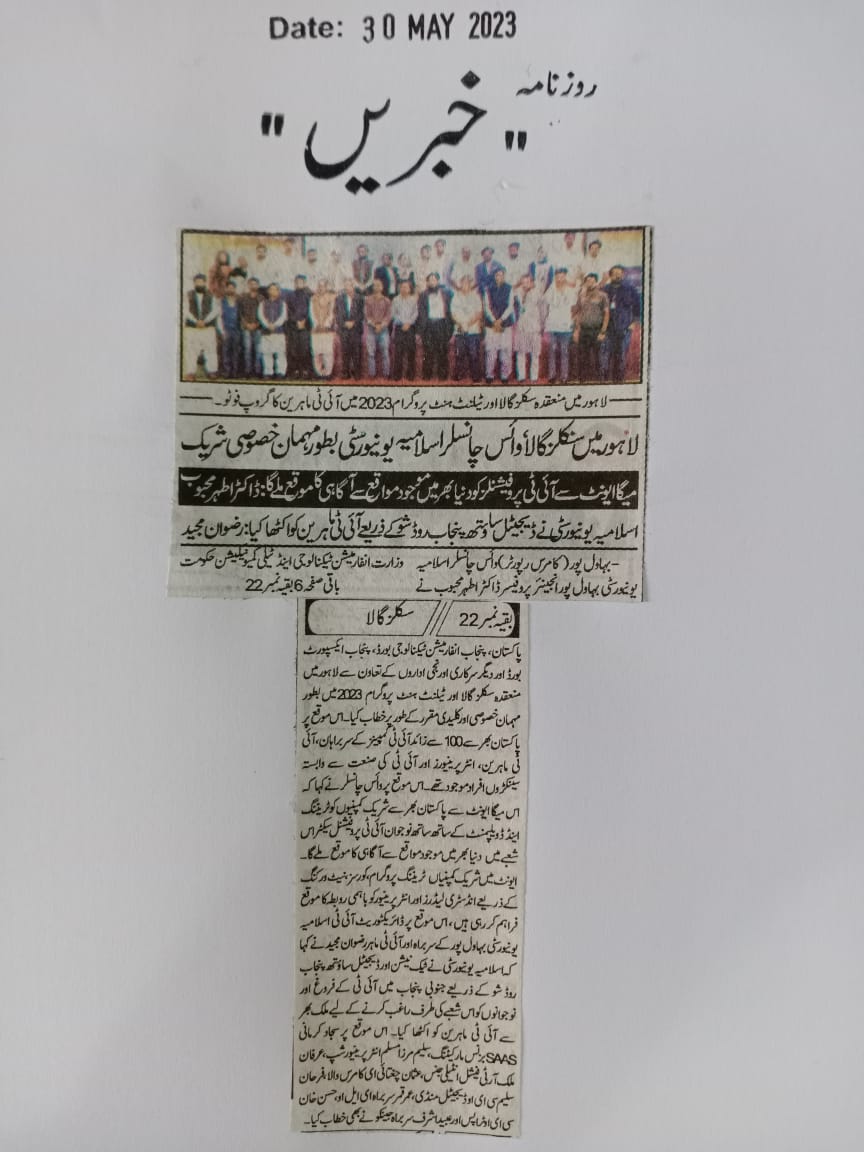 Date: 30 MAY 2023
روزنامہ
"خبریں"
لاہور میں منعقدہ سکلز گالا اور ٹیلنٹ ہنٹ پروگرام 2023 میں آئی ٹی ماہرین کا گروپ فوٹو۔
لاہور میں سکلز گالا وائس چانسلر اسلامیہ یونیورسٹی بطور مہمان خصوصی شریک
میگا ایونٹ سے آئی ٹی پروفیشنلز کو دنیا بھر میں موجود مواقع سے آگاہی کا موقع ملے گا: ڈاکٹر اطہر محبوب
اسلامیہ یونیورسٹی نے ڈیجیٹل ساؤتھ پنجاب روڈ شو کے ذریعے آئی ٹی ماہرین کو اکٹھا کیا: رضوان مجید
بہاول پور (کامرس رپورٹر) وائس چانسلر اسلامیہ
یونیورسٹی بہاول پور انجینئر پروفیسر ڈاکٹر اطہر محبوب نے
وزارت انفارمیشن ٹیکنالوجی اینڈ ٹیلی کمیونیکیشن حکومت
باقی صفحہ 6 بقیہ نمبر 22
بقیہ نمبر 22 // سکلز گالا
پاکستان، پنجاب انفارمیشن ٹیکنالوجی بورڈ، پنجاب ایکسپورٹ
بورڈ اور دیگر سرکاری اور نجی اداروں کے تعاون سے لاہور میں
منعقدہ سکلز گالا اور ٹیلنٹ ہنٹ پروگرام 2023 میں بطور
مہمان خصوصی اور کلیدی مقرر کے طور پر خطاب کیا۔ اس موقع پر
پاکستان بھر سے 100 سے زائد آئی ٹی کمپنیز کے سربراہان، آئی
ٹی ماہرین، انٹرپرینیورز اور آئی ٹی کی صنعت سے وابستہ
سینکڑوں افراد موجود تھے۔ اس موقع پر وائس چانسلر نے کہا کہ
اس میگا ایونٹ سے پاکستان بھر سے شریک کمپنیوں کو ٹریننگ
اینڈ ڈویلپمنٹ کے ساتھ ساتھ نوجوان آئی ٹی پروفیشنل سیکٹر اس
شعبے میں دنیا بھر میں موجود مواقع سے آگاہی کا موقع ملے گا۔
ایونٹ میں شریک کمپنیاں ٹریننگ پروگرام، کورسز، نیٹ ورکنگ
کے ذریعے انڈسٹری لیڈرز اور انٹرپرینیور کو باہمی روابط کا موقع
فراہم کر رہی ہیں، اس موقع پر ڈائریکٹوریٹ آئی ٹی اسلامیہ
یونیورسٹی بہاول پور کے سربراہ اور آئی ٹی ماہر رضوان مجید نے کہا
کہ اسلامیہ یونیورسٹی نے ٹیک نیشن اور ڈیجیٹل ساؤتھ پنجاب
روڈ شو کے ذریعے جنوبی پنجاب میں آئی ٹی کے فروغ اور
نوجوانوں کو اس شعبے کی طرف راغب کرنے کے لیے ملک بھر
سے آئی ٹی ماہرین کو اکٹھا کیا۔ اس موقع پر سجاد کرمانی
SAAS بزنس مارکیٹنگ، سلیم مرزا مسلم انٹرپرینیورشپ، عرفان
ملک آرٹی فیشل انٹیلی جنس، عثمان چغتائی ای کامرس والا، فرحان
سلیم سی ای او ڈیجیٹل منڈی، عمر قمر سربراہ ای ایل او، حسن خان
سی ای او اور عبید اشرف سربراہ نے بھی خطاب کیا۔